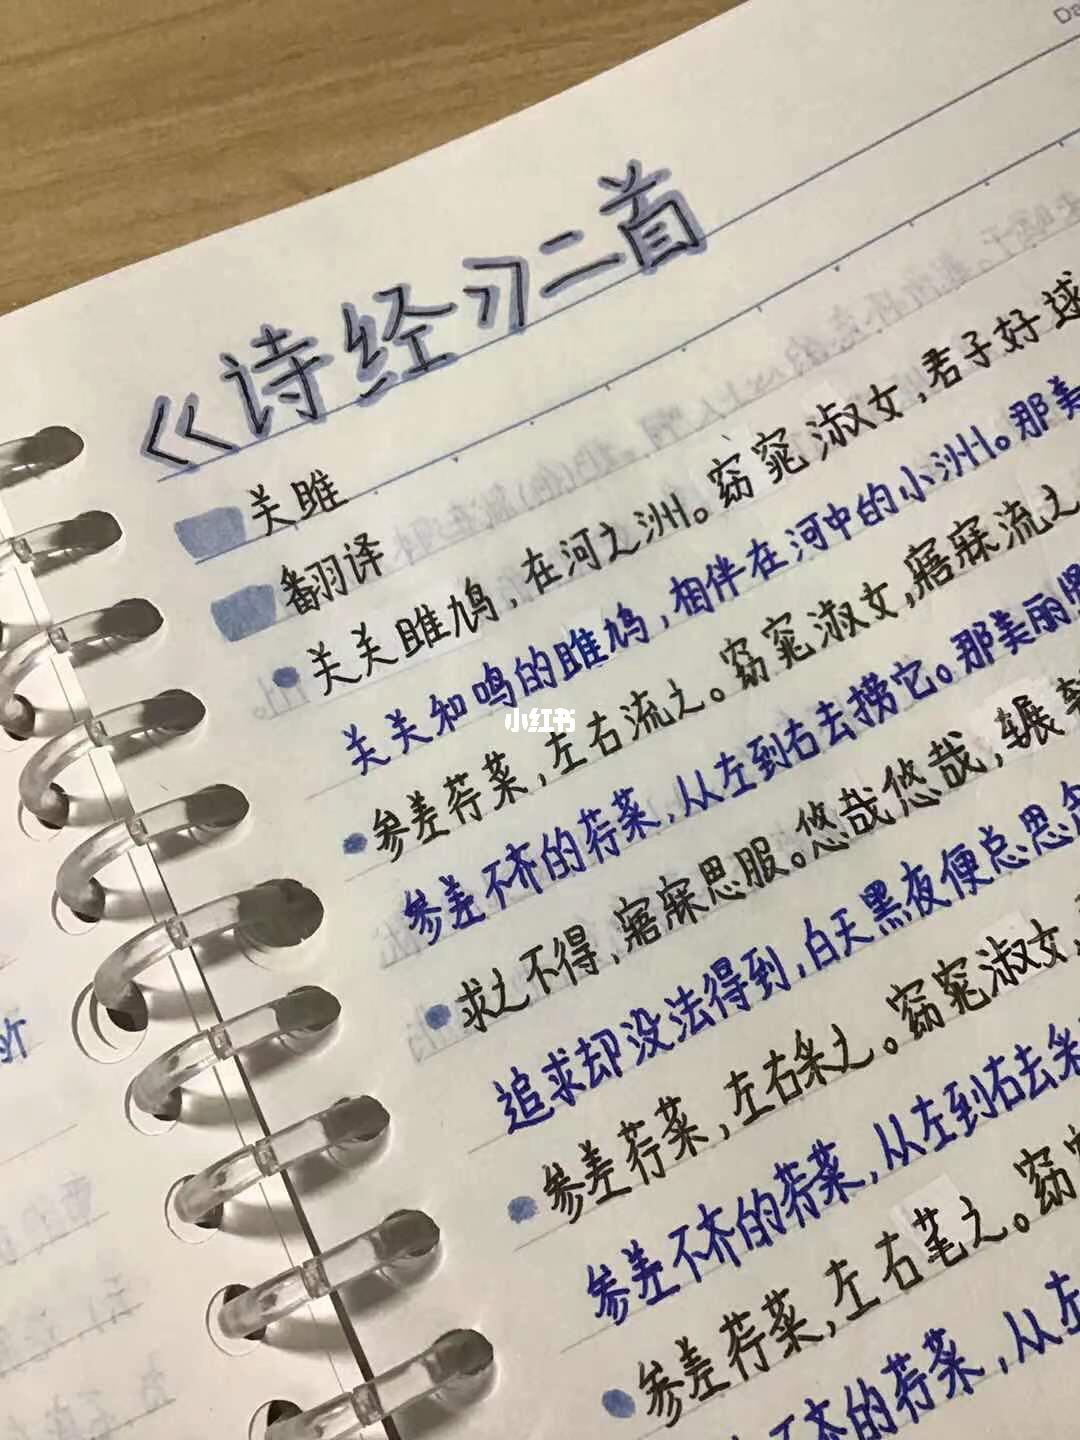 《诗经》二首
关雎
翻译
关关雎鸠，在河之洲。窈窕淑女，君子好逑
关关和鸣的雎鸠，相伴在河中的小洲。那美
参差荇菜，左右流之。窈窕淑女，寤寐流之
参差不齐的荇菜，从左到右去捞它。那美丽贤
求之不得，寤寐思服。悠哉悠哉，辗转
追求却没法得到，白天黑夜便总思念
参差荇菜，左右采之。窈窕淑女，
参差不齐的荇菜，从左到右去采
参差荇菜，左右芼之。窈窕
参差不齐的荇菜，从左
小红书